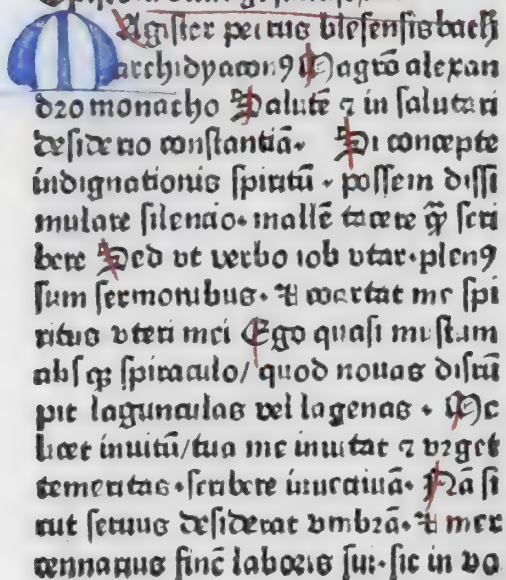 Magister petrus blesensis bath
archidyacon9 Magrō alexan
dro monacho Salutē ⁊ in salutari
desiderio constantiā. Si concepte
indignationis spiritū . possem dissi
mulare silencio. mallē tacere q̄ȝ scri
bere Sed vt verbo iob vtar. plen9
sum sermonibus. ⁊ coartat me spi
ritus vteri mei Ego quasi mustum
absqȝ spiraculo/ quod nouas disrū
pit lagunculas vel lagenas . Me
licet inuitū/tua me inuitat ⁊ vrget
temeritas. scribere inuectiuā. Nā si
cut seruus desiderat vmbrā. ⁊ mer
cennarius finē laboris sui. sic in vo